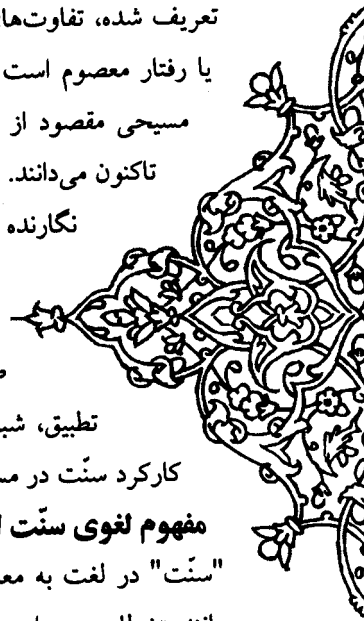 تعریف شده، تفاوت‌های
یا رفتار معصوم است
مسیحی مقصود از
تاکنون می‌دانند.
نگارنده
تطبیق، شب
کارکرد سنّت در مس
مفهوم لغوی سنّت ا
"سنّت" در لغت به مع